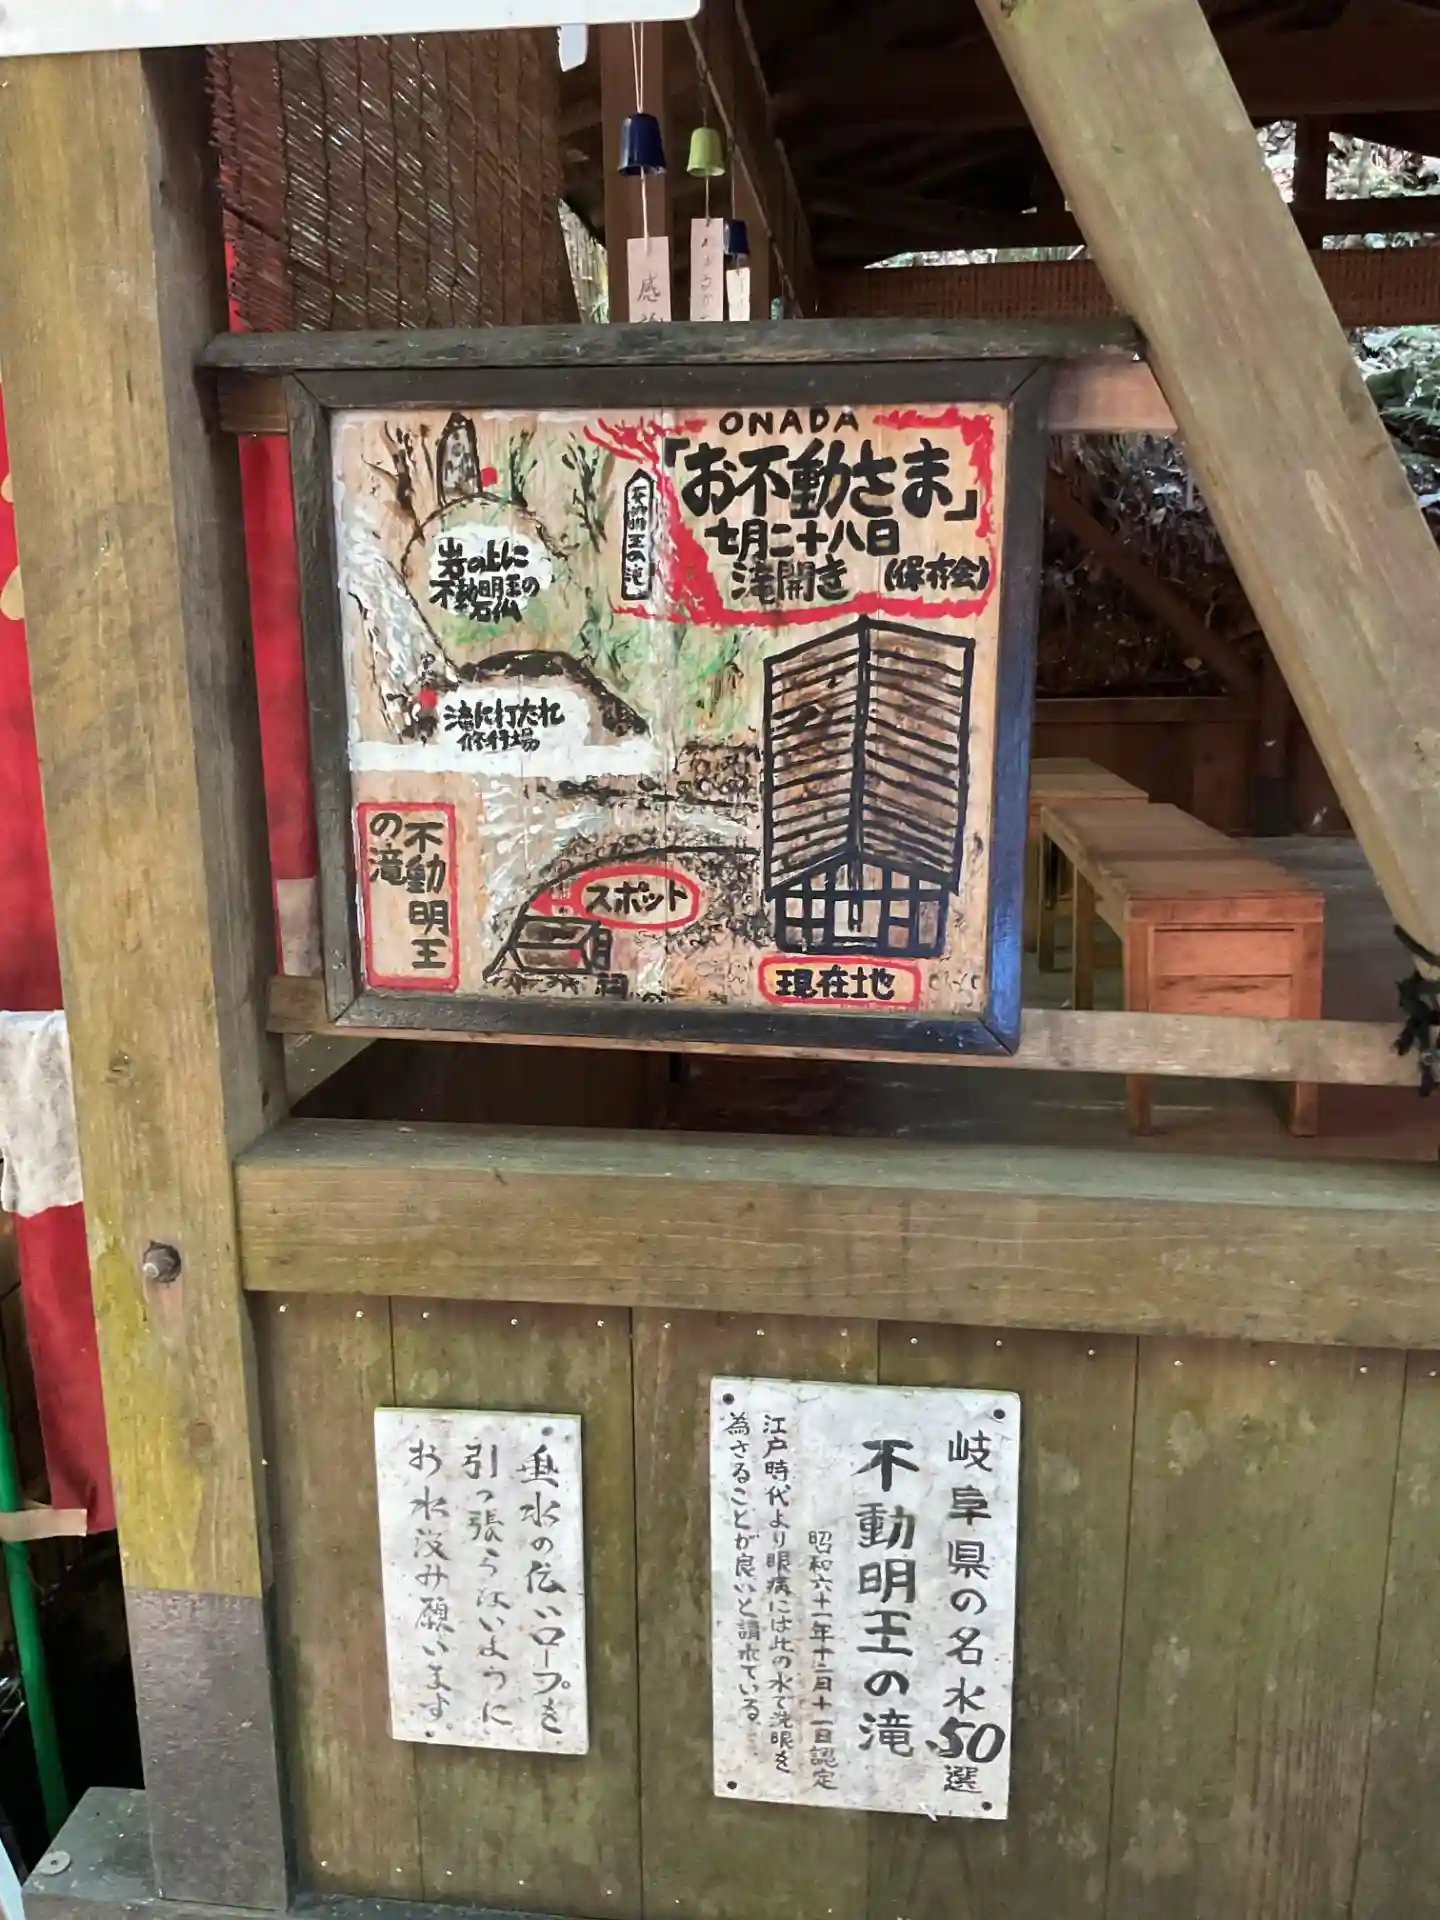 感
ONADA
「お不動さま」
七月二十八日
滝開き (保存会)
不動明王の滝
岩の上に
不動明王の
石仏
滝に打たれ
修行場
不動明王
の滝
スポット
祠
現在地
岐阜県の名水50選
不動明王の滝
昭和六十一年十二月十一日認定
江戸時代より眼病には此の水で洗眼を
為さることが良いと謂れている
垂水の伝いロープを
引っ張らないように
お水汲み願います。